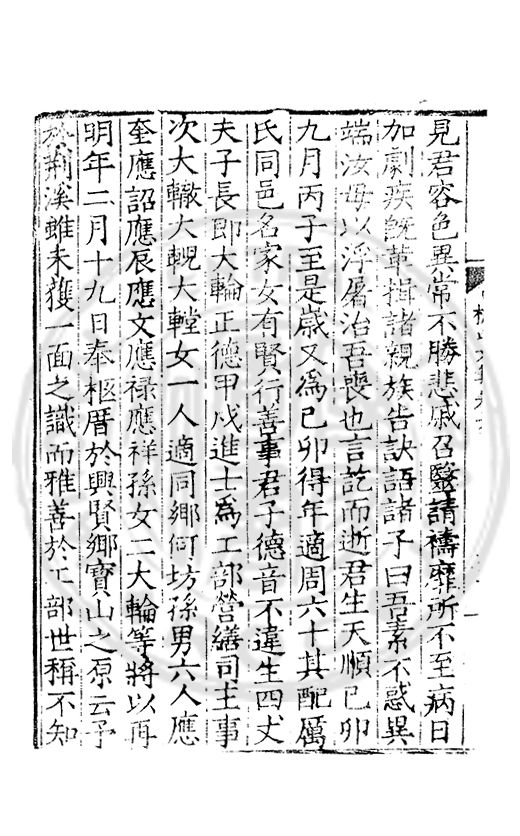 見君容色異常不勝悲戚召毉請禱靡所不至病日
加劇疾既革揖諸親族告訣語諸子曰吾素不惑異
端汝毋以浮屠治吾喪也言訖而逝君生天順己卯
九月丙子至是歲又為己卯得年適周六十其配厲
氏同邑名家女有賢行善事君子德音不違生四丈
夫子長即大輪正德甲戌進士為工部營繕司主事
次大轍大輗大𨎋女一人適同鄉何坊孫男六人應
奎應詔應辰應文應祿應祥孫女二大輪等將以再
明年二月十九日奉柩厝於興賢鄉寶山之原云予
於荆溪雖未獲一面之識而雅善於工部世稱不知